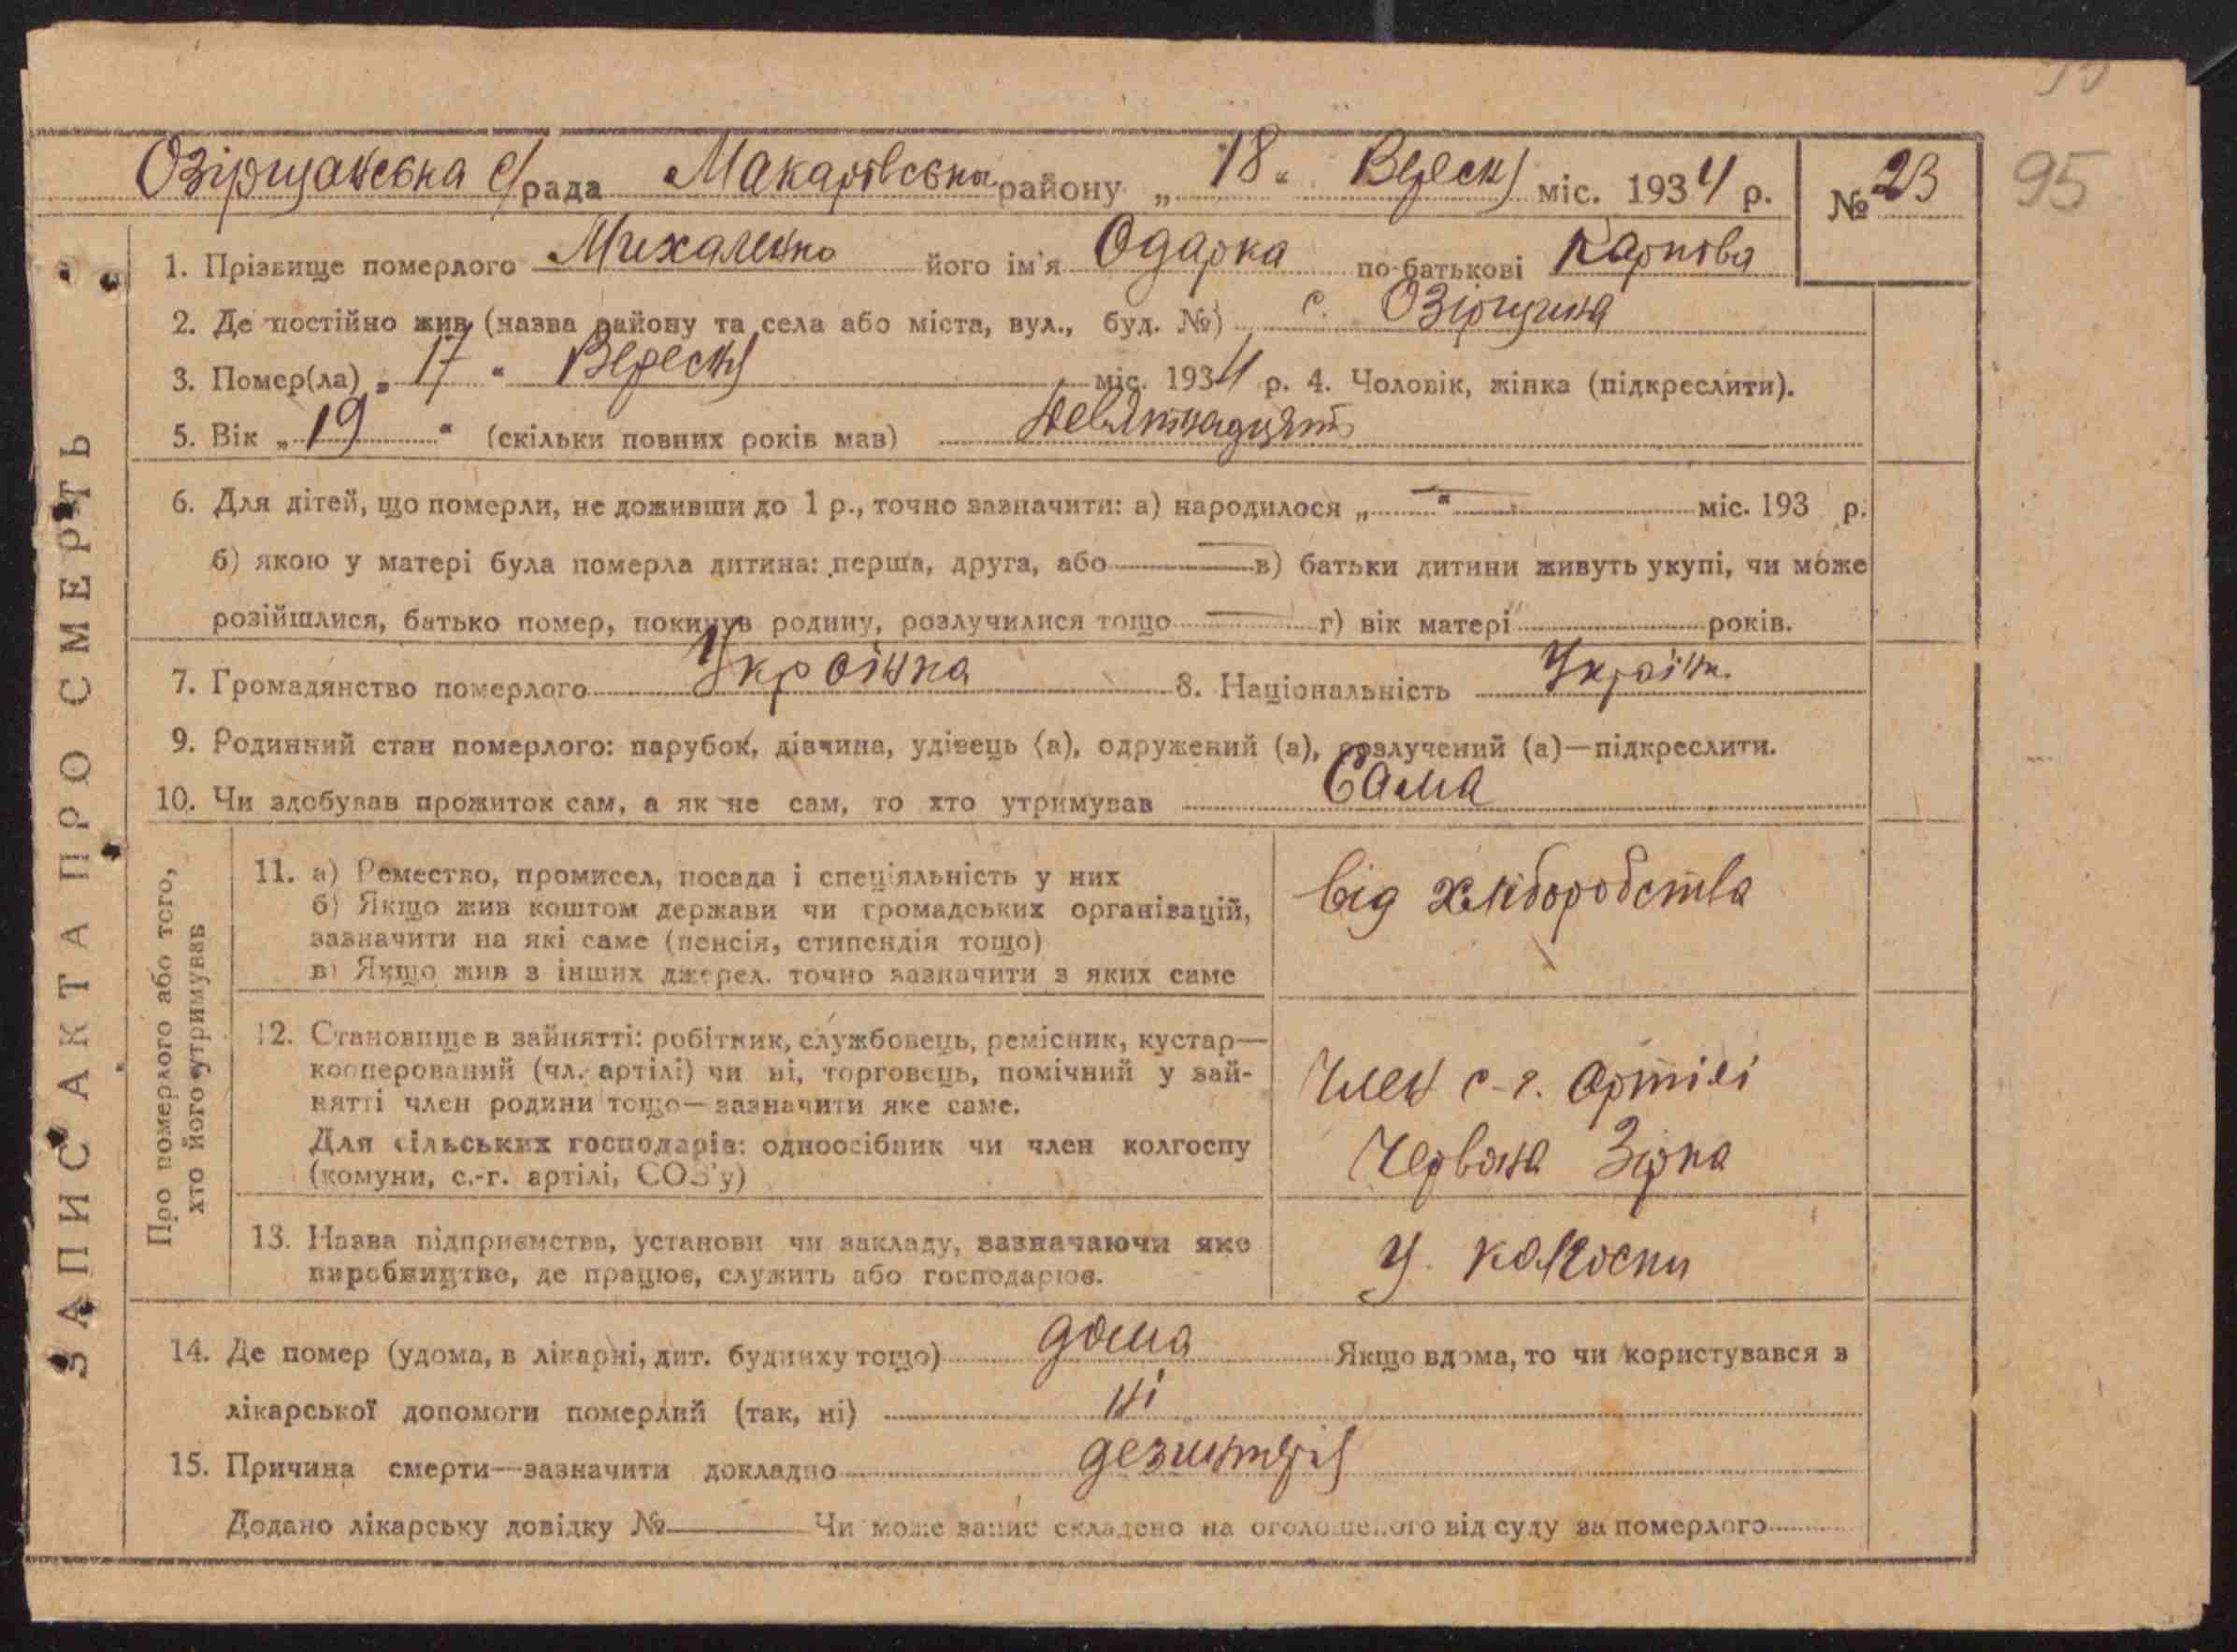 95
Озірщанська с/рада Макарівська району „18“ Вересня міс. 1934 р. № 23
1. Прізвище померлого Михаленко його ім'я Одарка по-батькові Карпова
2. Де постійно жив (назва району та села або міста, вул., буд. №) с. Озірщина
3. Помер(ла) „17“ Вересня міс. 1934 р. 4. Чоловік, жінка (підкреслити).
5. Вік „19“ (скільки повних років мав) Девятнадцять
6. Для дітей, що померли, не доживши до 1 р., точно зазначити: а) народилося „—“ — міс. 193 р.
б) якою у матері була померла дитина: перша, друга, або — в) батьки дитини живуть укупі, чи може
розійшлися, батько помер, покинув родину, розлучилися тощо — г) вік матері " років.
7. Громадянство померлого Українка 8. Національність Україн.
9. Родинний стан померлого: парубок, дівчина, удівець (а), одружений (а), розлучений (а)—підкреслити.
10. Чи здобував прожиток сам, а як не сам, то хто утримував Сама
ЗАПИС АКТА ПРО СМЕРТЬ
Про померлого або того,
хто його утримував
11. а) Ремество, промисел, посада і спеціяльність у них
б) Якщо жив коштом держави чи громадських організацій,
зазначити на які саме (пенсія, стипендія тощо)
в) Якщо жив з інших джерел. точно зазначити з яких саме
від хліборобства
12. Становище в зайнятті: робітник, службовець, ремісник, кустар—
кооперований (чл. артілі) чи ні, торговець, помічний у зай-
нятті член родини тощо—зазначити яке саме.
Для сільських господарів: одноосібник чи член колгоспу
(комуни, с.-г. артілі, СОЗ'у)
Член с-г. Артілі
Червона Зірка
13. Назва підприємства, установи чи закладу, зазначаючи яке
виробництво, де працює, служить або господарює.
У. колгоспи
14. Де помер (удома, в лікарні, дит. будинку тощо) дома Якщо вдома, то чи користувався з
лікарської допомоги померлий (так, ні) ні
15. Причина смерти—зазначити докладно дезинтерія
Додано лікарську довідку № — Чи може запис складено на оголошеного від суду за померлого